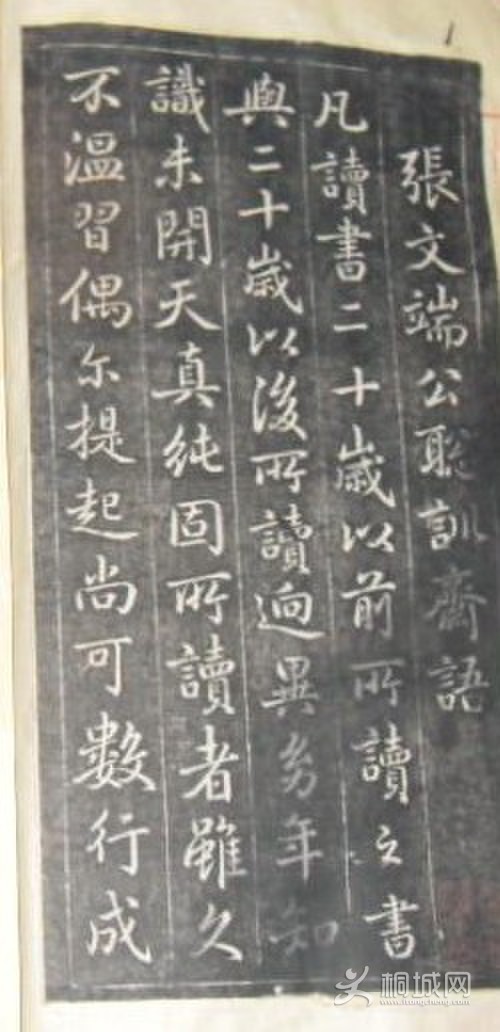 張文端公聡訓齋語
凡讀書二十歲以前所讀之書
與二十歲以後所讀迥異幼年知
識未開天真純固所讀者雖久
不溫習偶尔提起尚可數行成
1
桐城网
www.itongcheng.com